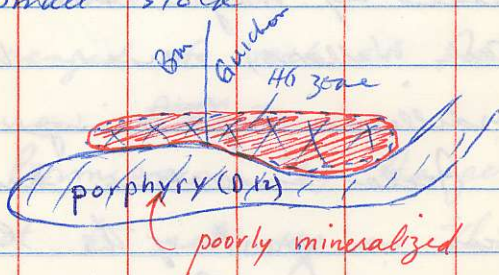 small stock
Bm
Guichon
HG zone
porphyry (D12)
poorly mineralized